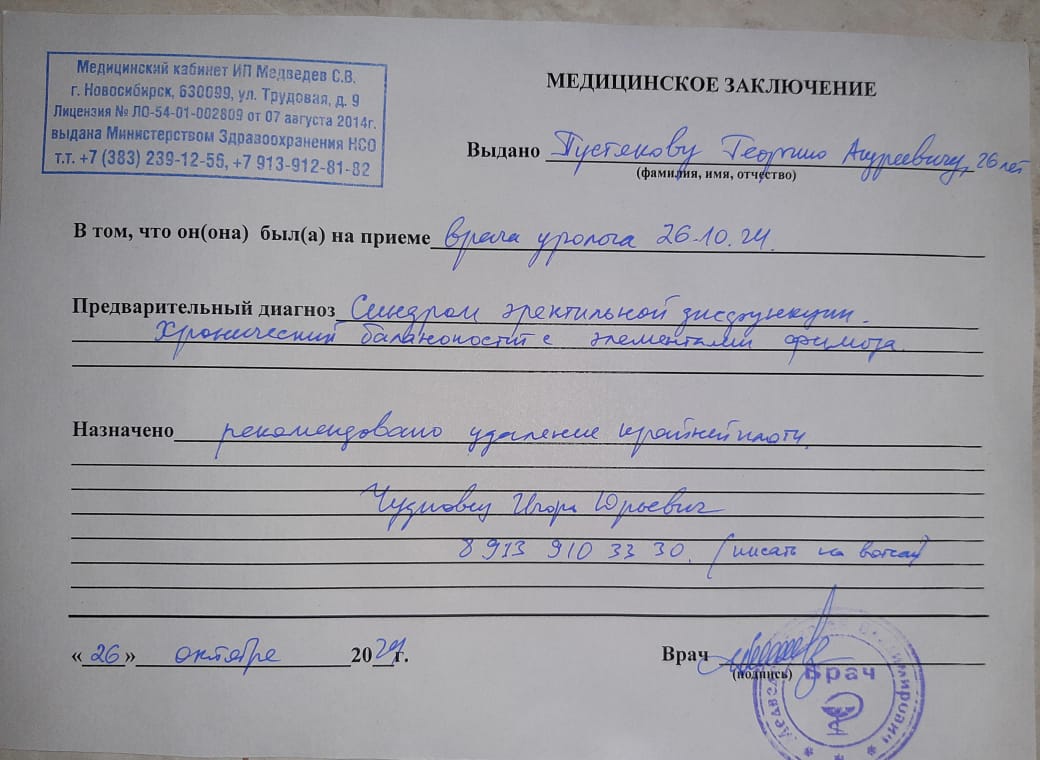 Медицинский кабинет ИП Медведев С.В.
г. Новосибирск, 630099, ул. Трудовая, д. 9
Лицензия № ЛО-54-01-002809 от 07 августа 2014г.
выдана Министерством Здравоохранения НСО
т.т. +7 (383) 239-12-55, +7 913-912-81-82
МЕДИЦИНСКОЕ ЗАКЛЮЧЕНИЕ
Выдано Пустякову Георгию Андреевичу, 26 лет
(фамилия, имя, отчество)
В том, что он(она) был(а) на приеме врача уролога 26.10.24.
Предварительный диагноз Синдром эректильной дисфункции.
Хронический баланопостит с элементами фимоза.
Назначено рекомендовано удаление крайней плоти.
Игорь Юрьевич
8 913 910 33 30. (писать на вотсап)
« 26 » октября 2024г.
Врач
(подпись)
Врач